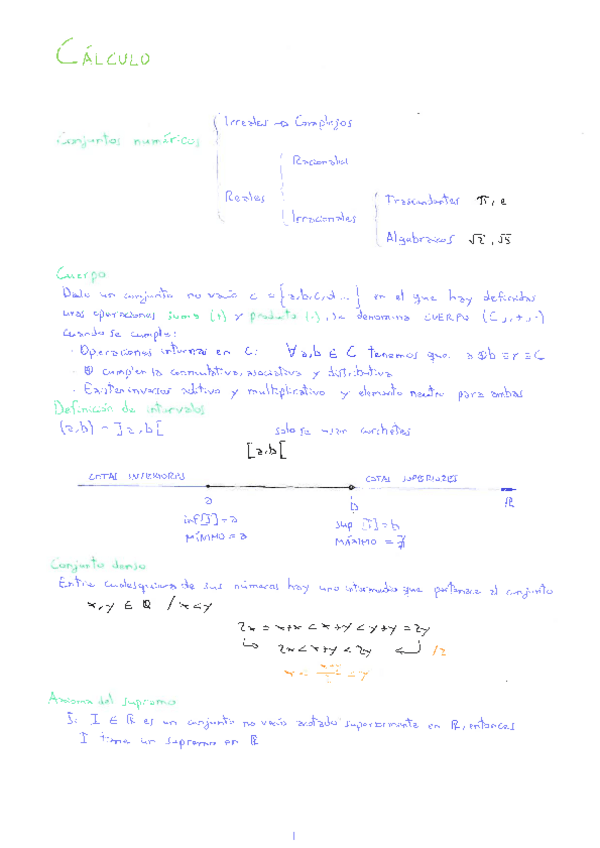 CÁLCULO
Irreales → Complejos
Conjuntos numéricos
Racionales
Reales
Trascendentes π, e
Irracionales
Algebraicos √2, √5
Cuerpo
Dado un conjunto no vacío C = {a,b,c,d...} en el que hay definidas
unas operaciones suma (+) y producto (·), se denomina CUERPO (C,+,·)
cuando se cumple:
· Operaciones internas en C: ∀a,b ∈ C tenemos que a⊕b = r ∈ C
· ⊕ cumplen la conmutativa, asociativa y distributiva
· Existen inversos aditivo y multiplicativo y elemento neutro para ambas
Definición de intervalos
(a,b) = ]a,b[ solo se usan corchetes
[a,b[
COTAS INFERIORES COTAS SUPERIORES
a b ℝ
inf[I] = a sup [I] = b
MÍNIMO = a MÁXIMO = ∄
Conjunto denso
Entre cualesquiera de sus números hay uno intermedio que pertenece al conjunto
x,y ∈ ℚ / x<y
2x = x+x < x+y < y+y = 2y
2x < x+y < 2y /2
x < x+y/2 < y
Axioma del supremo
Si I ∈ ℝ es un conjunto no vacío acotado superiormente en ℝ, entonces
I tiene un supremo en ℝ
1